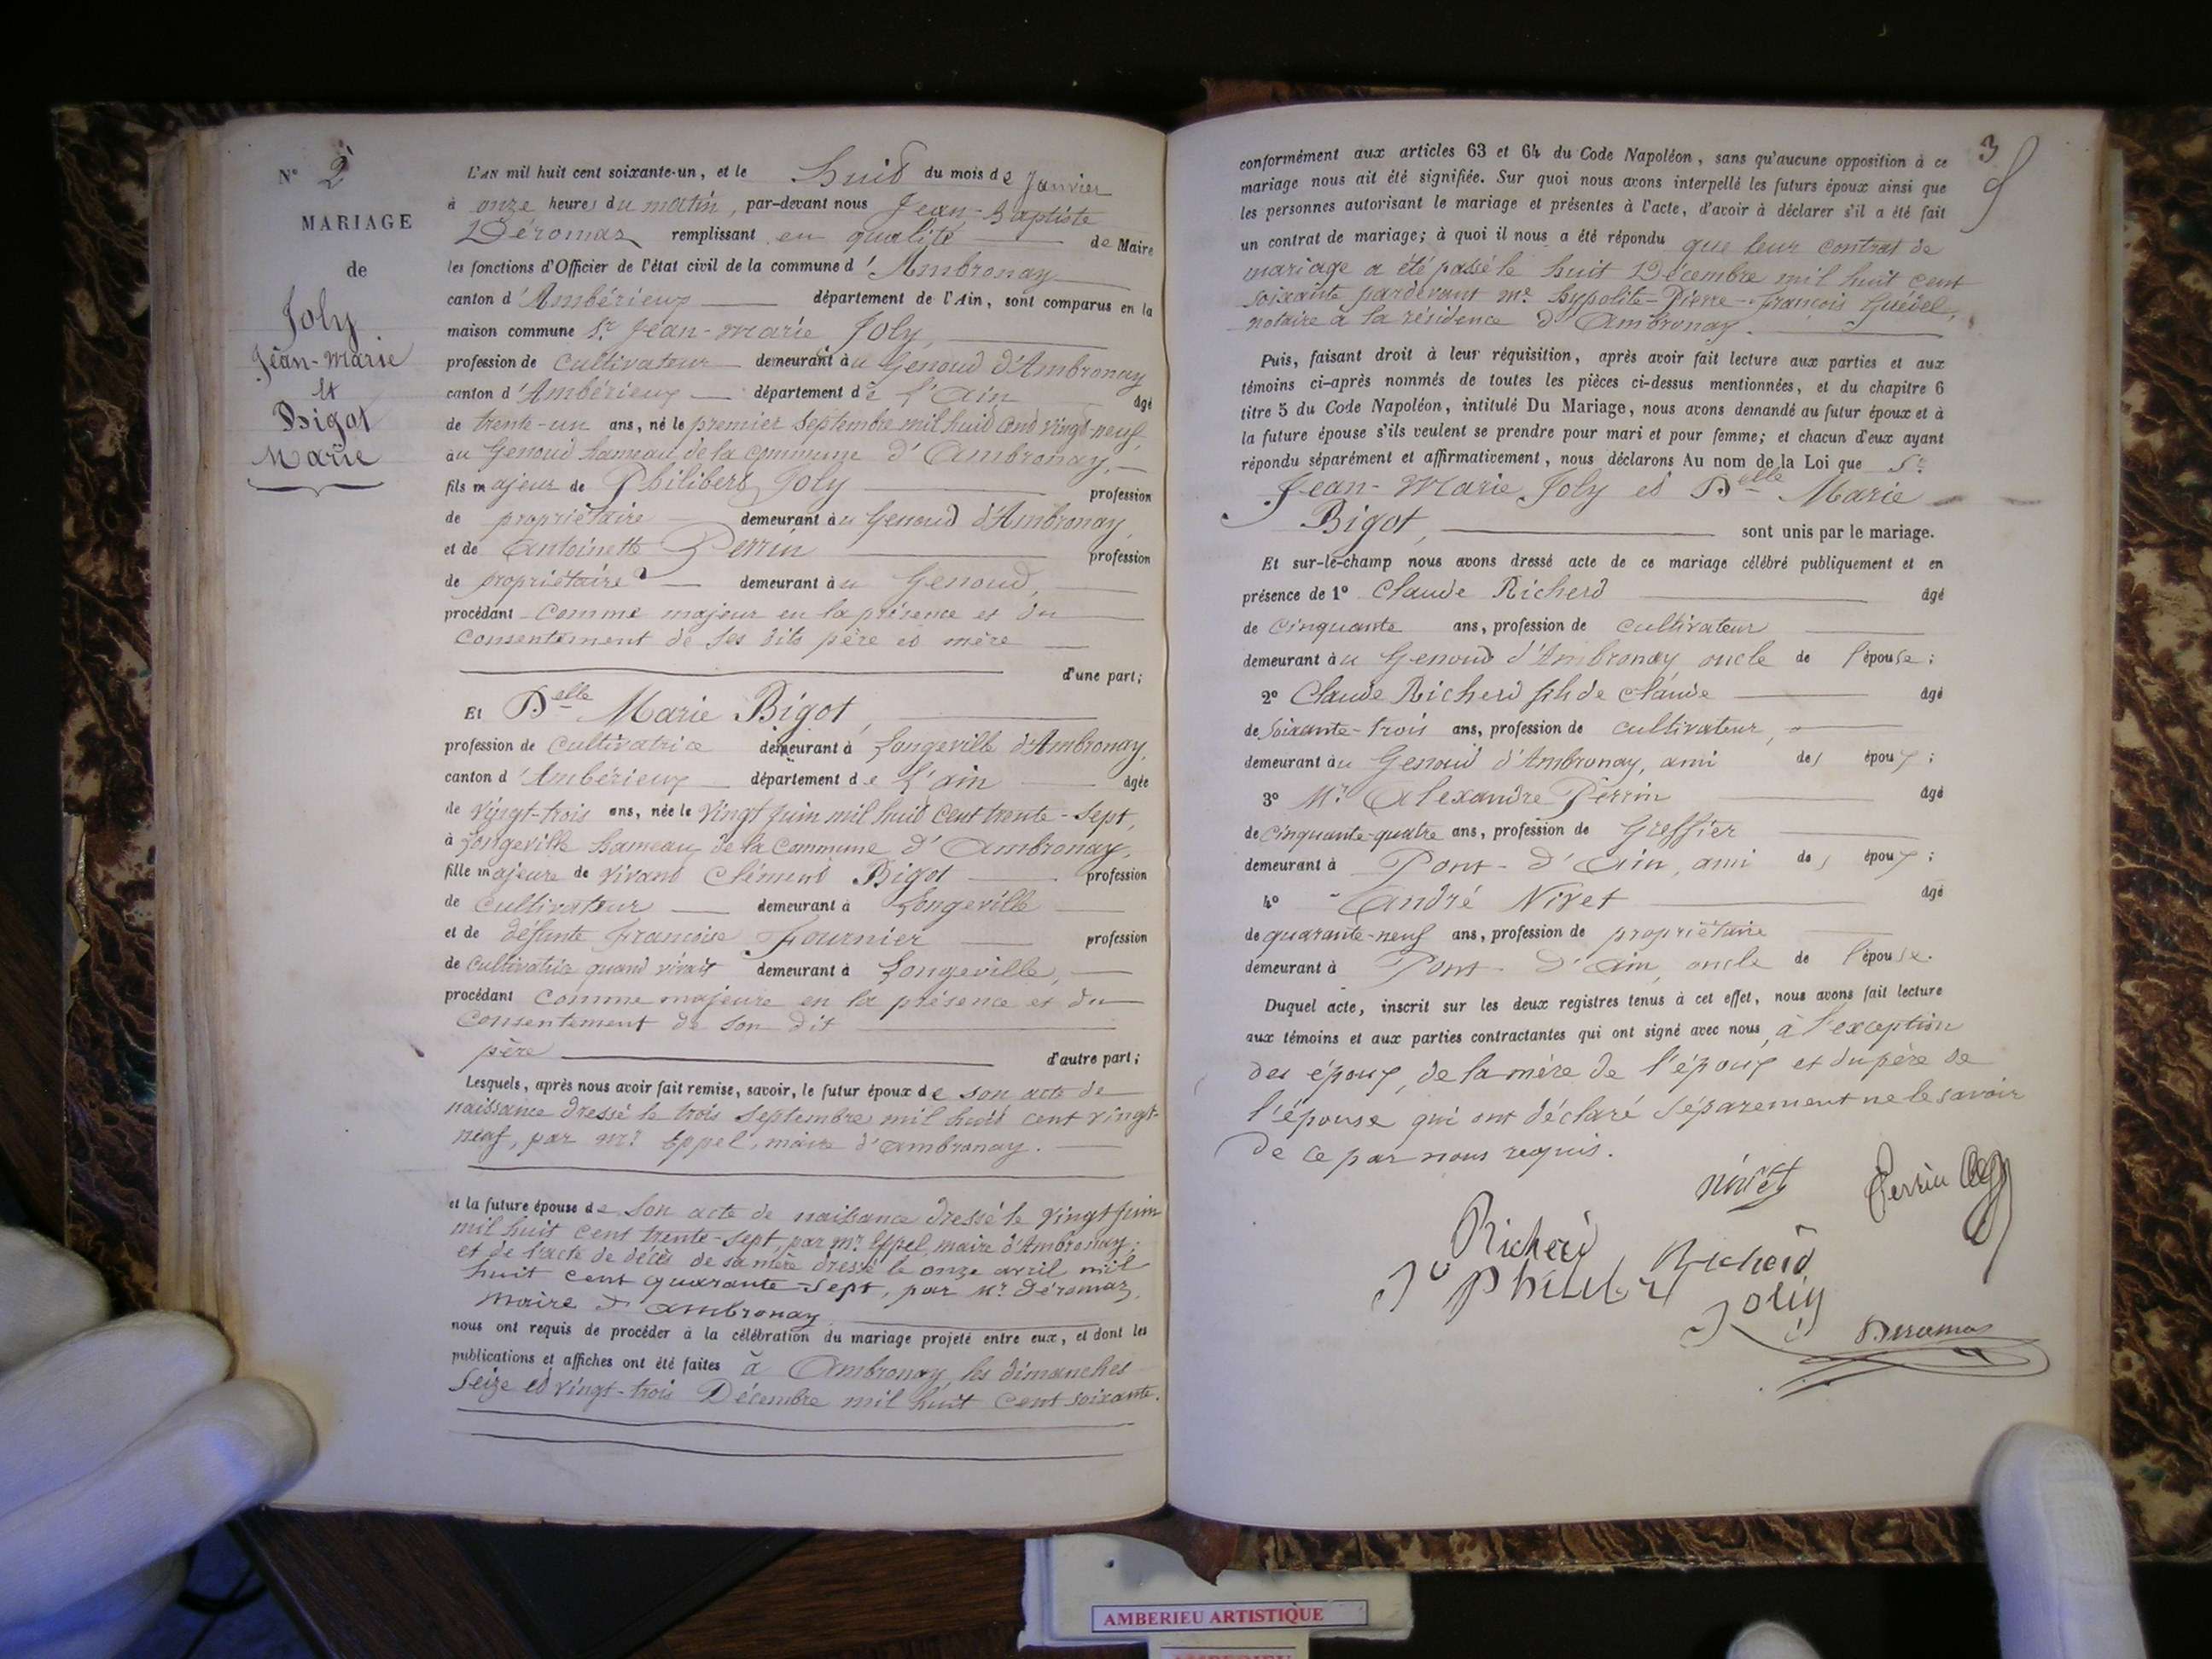 N° 2
MARIAGE
de
Joly
Jean-Marie
et
Bigot
Marie
L'AN mil huit cent soixante-un, et le huit du mois de Janvier
à onze heures du matin, par-devant nous Jean-Baptiste
Déromas remplissant en qualité de Maire
les fonctions d'Officier de l'état civil de la commune d'Ambronay
canton d'Ambérieux département de l'Ain, sont comparus en la
maison commune Sr Jean-Marie Joly,
profession de Cultivateur demeurant au Genoud d'Ambronay
canton d'Ambérieux département de L'Ain âgé
de trente-un ans, né le premier Septembre mil huit Cent Vingt-neuf
au Genoud hameau de la Commune d'Ambronay,
fils majeur de Philibert Joly profession
de propriétaire demeurant au Genoud d'Ambronay
et de Antoinette Perrin profession
de propriétaire demeurant au Genoud,
procédant Comme majeur en la présence et du
Consentement de ses dits père et mère
d'une part;
Et Delle Marie Bigot,
profession de Cultivatrice demeurant à Longeville d'Ambronay,
canton d'Ambérieux département de L'ain âgée
de Vingt-trois ans, née le Vingt Juin mil huit Cent trente-Sept,
à Longeville hameau de la Commune d'Ambronay,
fille majeure de Vivant Clément Bigot profession
de Cultivateur demeurant à Longeville
et de défunte Françoise Fournier profession
de Cultivatrice quand vivait demeurant à Longeville,
procédant Comme majeure en la présence et du
Consentement de Son dit
père d'autre part;
Lesquels, après nous avoir fait remise, savoir, le futur époux de son acte de
naissance dressé le trois Septembre mil huit cent vingt-
neuf, par Mr. Eppel, maire d'Ambronay.
et la future épouse de Son acte de naissance dressé le Vingt Juin
mil huit cent trente-sept, par Mr Eppel, maire d'Ambronay;
et de l'acte de décès de sa mère dressé le onze avril mil
huit cent quarante-sept, par Mr Déromas,
Maire d'Ambronay
nous ont requis de procéder à la célébration du mariage projeté entre eux, et dont les
publications et affiches ont été faites à Ambronay les dimanches
Seize et vingt-trois Décembre mil huit Cent soixante.
3
conformément aux articles 63 et 64 du Code Napoléon, sans qu'aucune opposition à ce
mariage nous ait été signifiée. Sur quoi nous avons interpellé les futurs époux ainsi que
les personnes autorisant le mariage et présentes à l'acte, d'avoir à déclarer s'il a été fait
un contrat de mariage; à quoi il nous a été répondu que leur contrat de
mariage a été passé le huit Décembre mil huit cent
soixante, pardevant Me hypolite-Pierre-François Guédel,
notaire à la résidence d'Ambronay.
Puis, faisant droit à leur réquisition, après avoir fait lecture aux parties et aux
témoins ci-après nommés de toutes les pièces ci-dessus mentionnées, et du chapitre 6
titre 5 du Code Napoléon, intitulé Du Mariage, nous avons demandé au futur époux et à
la future épouse s'ils veulent se prendre pour mari et pour femme; et chacun d'eux ayant
répondu séparément et affirmativement, nous déclarons Au nom de la Loi que Sr
Jean-Marie Joly et Delle Marie
Bigot, sont unis par le mariage.
Et sur-le-champ nous avons dressé acte de ce mariage célébré publiquement et en
présence de 1° Claude Richerd âgé
de Cinquante ans, profession de Cultivateur
demeurant au Genoud d'Ambronay oncle de l'épouse;
2° Claude Richerd fils de Claude âgé
de Soixante-trois ans, profession de Cultivateur,
demeurant au Genoud d'Ambronay, ami des époux;
3° Mr. Alexandre Perrin âgé
de Cinquante-quatre ans, profession de Greffier
demeurant à Pont-d'Ain, ami des époux;
4° André Nivet âgé
de quarante-neuf ans, profession de propriétaire
demeurant à Pont-d'Ain, oncle de l'épouse.
Duquel acte, inscrit sur les deux registres tenus à cet effet, nous avons fait lecture
aux témoins et aux parties contractantes qui ont signé avec nous, à l'exception
des époux, de la mère de l'époux et du père de
l'épouse qui ont déclaré séparement ne le savoir
de ce par nous requis.
nivet Perrin
Richerd Richerd
Joly
Deromas
AMBERIEU ARTISTIQUE
AMBERIEU